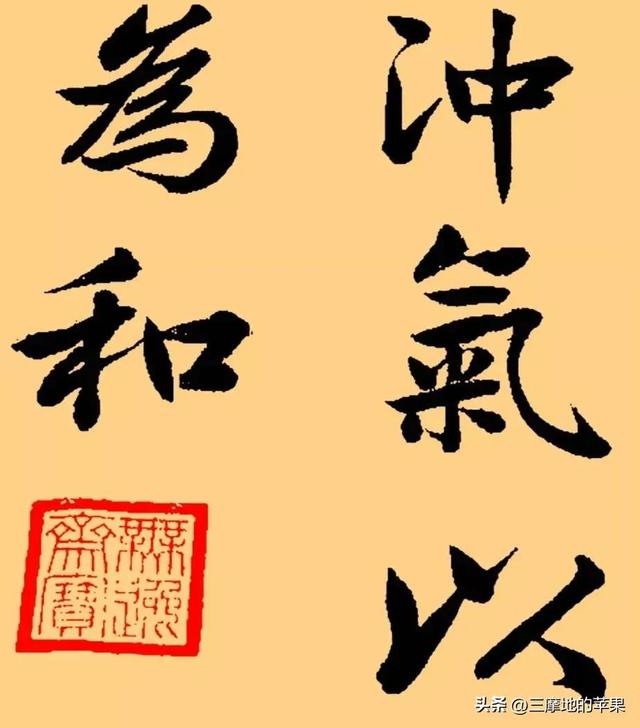 沖氣以
為和
头条 @三摩地的苹果